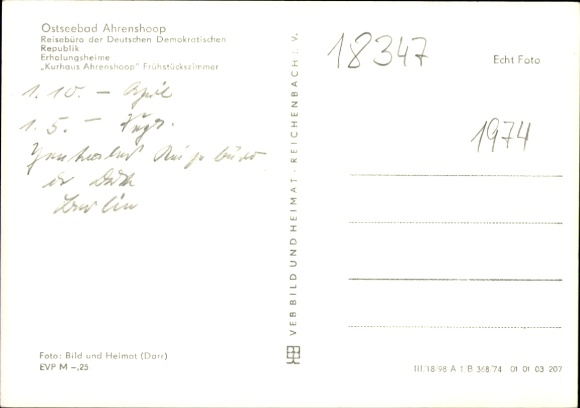 Ostseebad Ahrenshoop
Reisebüro der Deutschen Demokratischen
Republik
Erholungsheime
„Kurhaus Ahrenshoop" Frühstückszimmer
1. 10. – April
1. 5. –
der DDR
Berlin
Foto: Bild und Heimat (Darr)
EVP M –,25
VEB BILD UND HEIMAT · REICHENBACH i. V.
18347
Echt Foto
1974
III/18/98 A 1 B 368/74 01 01 03 207